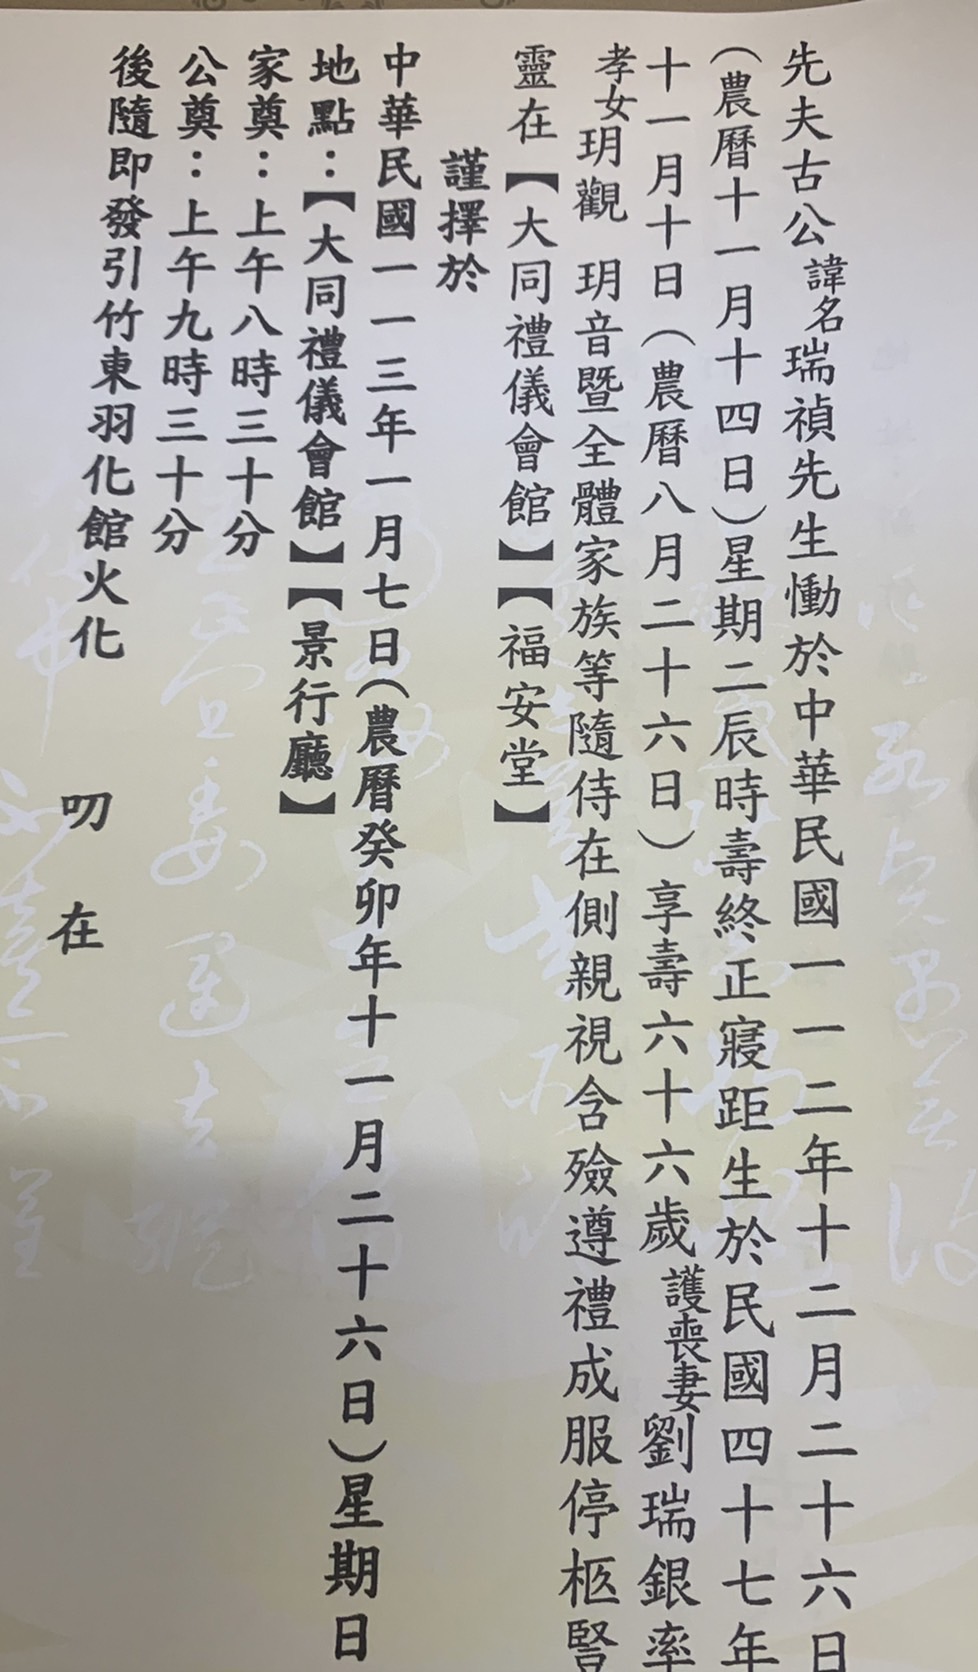 先夫古公諱名瑞禎先生慟於中華民國一一二年十二月二十六日
（農曆十一月十四日）星期二辰時壽終正寢距生於民國四十七年
十一月十日（農曆八月二十六日）享壽六十六歲護喪妻劉瑞銀率
孝女玥觀 玥音暨全體家族等隨侍在側親視含殮遵禮成服停柩豎
靈在【大同禮儀會館】【福安堂】
謹擇於
中華民國一一三年一月七日（農曆癸卯年十一月二十六日）星期日
地點：【大同禮儀會館】【景行廳】
家奠：上午八時三十分
公奠：上午九時三十分
後隨即發引竹東羽化館火化
叨 在